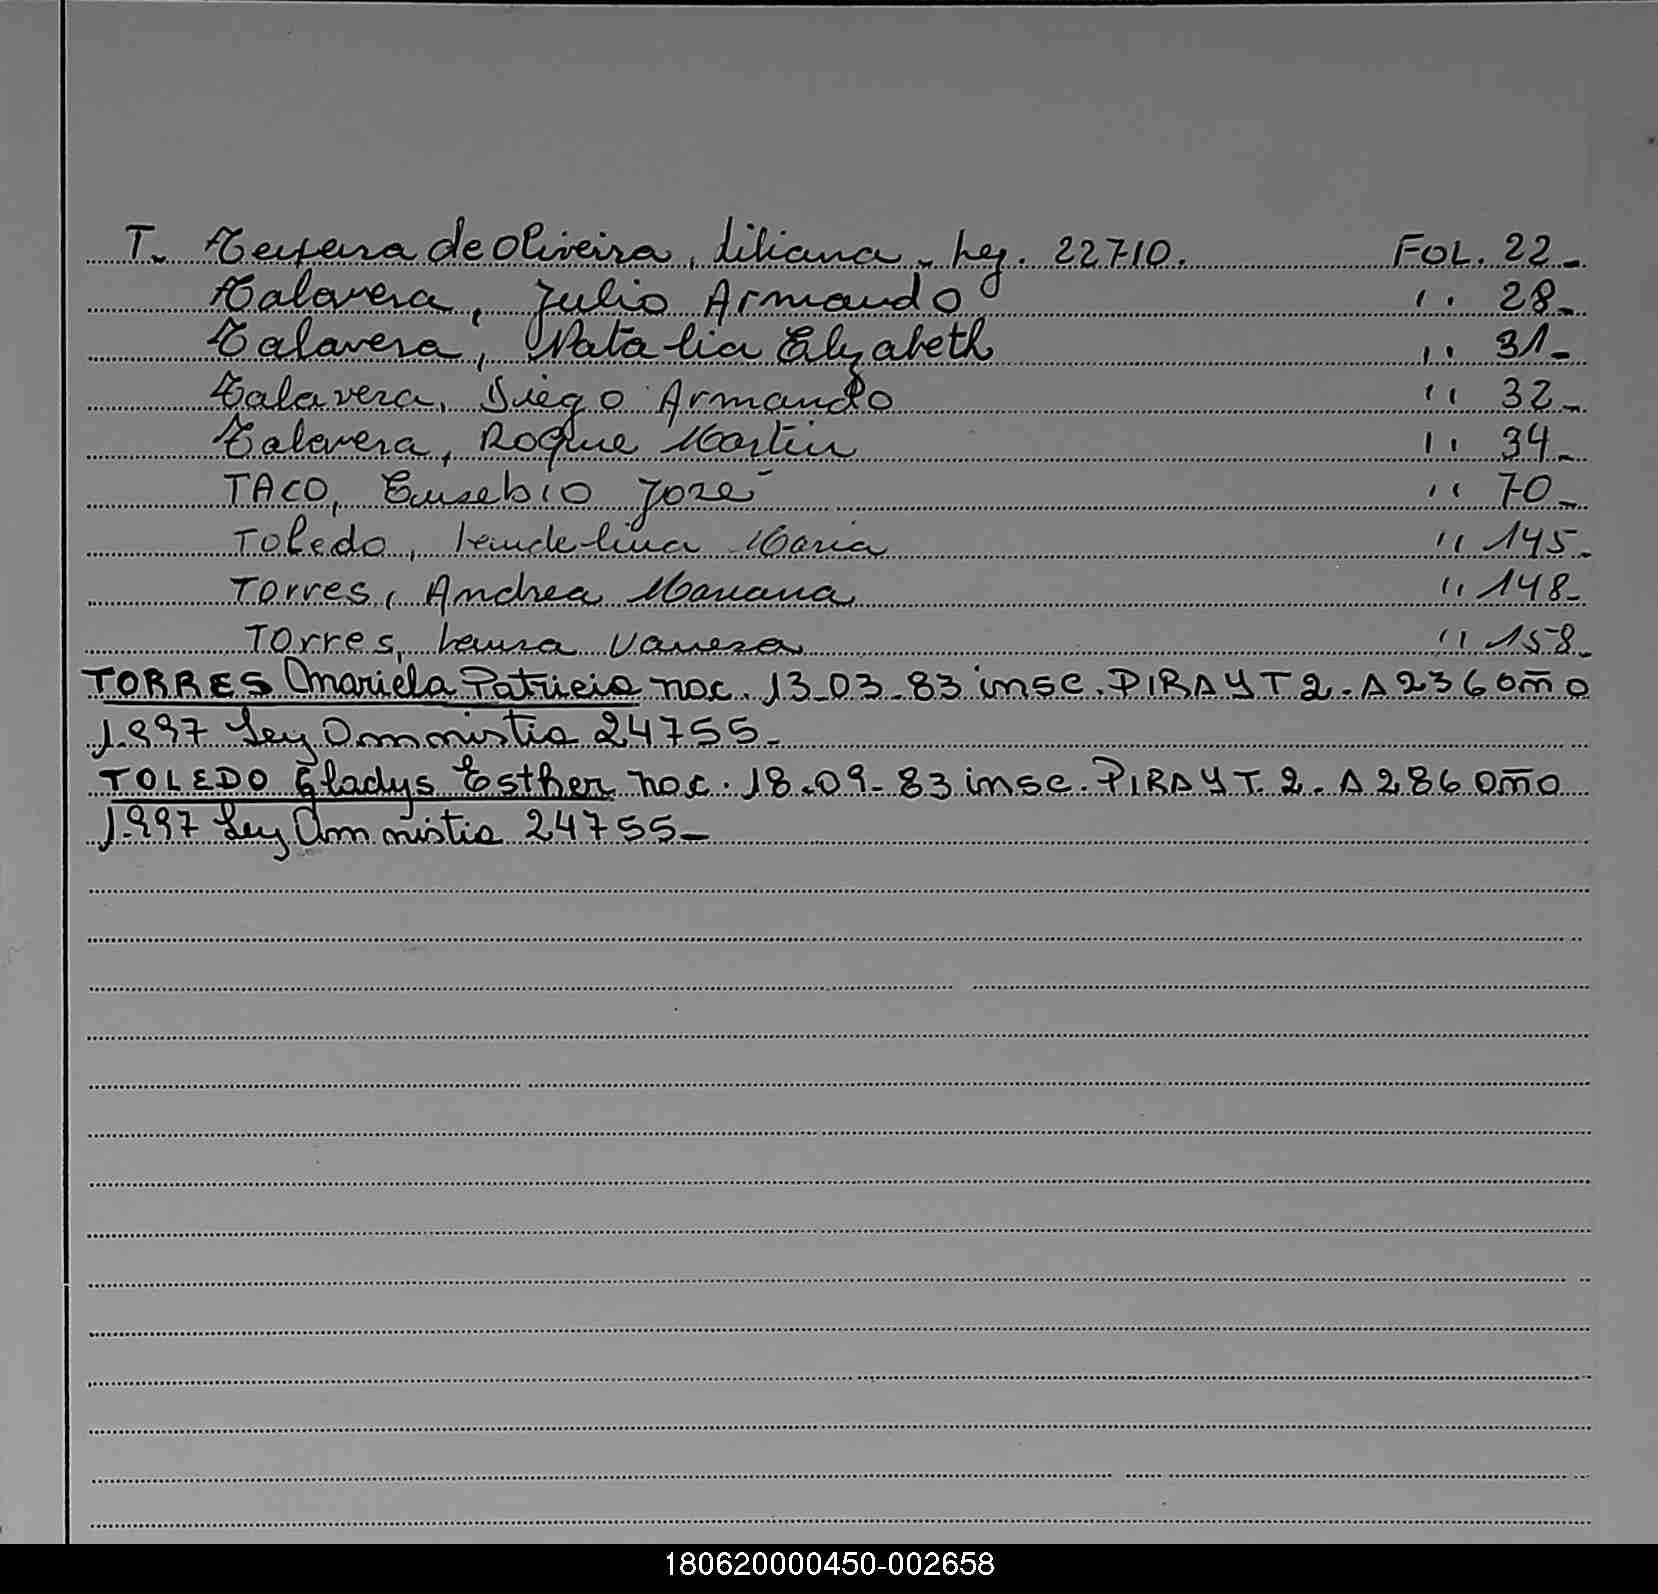 T. Texeira de Oliveira, Liliana - Ley. 22710. FOL. 22-
Talavera, Julio Armando " 28-
Talavera, Natalia Elizabeth " 31-
Talavera, Diego Armando " 32-
Talavera, Roque Martin " 34-
TACO, Eusebio José " 70-
Toledo, Maria " 145-
Torres, Andrea Mariana " 148-
Torres, Laura Vanesa " 158-
TORRES Mariela Patricia nac. 13-03-83 insc. PIRAY T 2-A 236 año
1.997 Ley Amnistia 24755-
TOLEDO Gladys Esther nac. 18-09-83 insc. PIRAY T. 2-A 286 año
1.997 Ley Amnistia 24755-
180620000450-002658